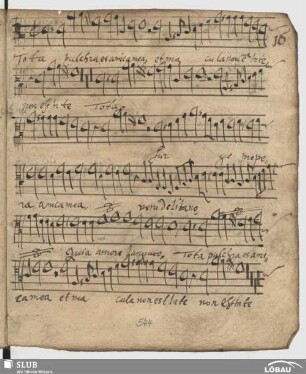 16
Tota pulchra es amica mea, et ma cula non est in te
non est in te Tota
Sur ge prope
ra amica mea veni de libano
Quia amore langueo, Tota pulchra es ami,
ca mea et ma cula non est in te non est in te
544
SLUB
LÖBAU